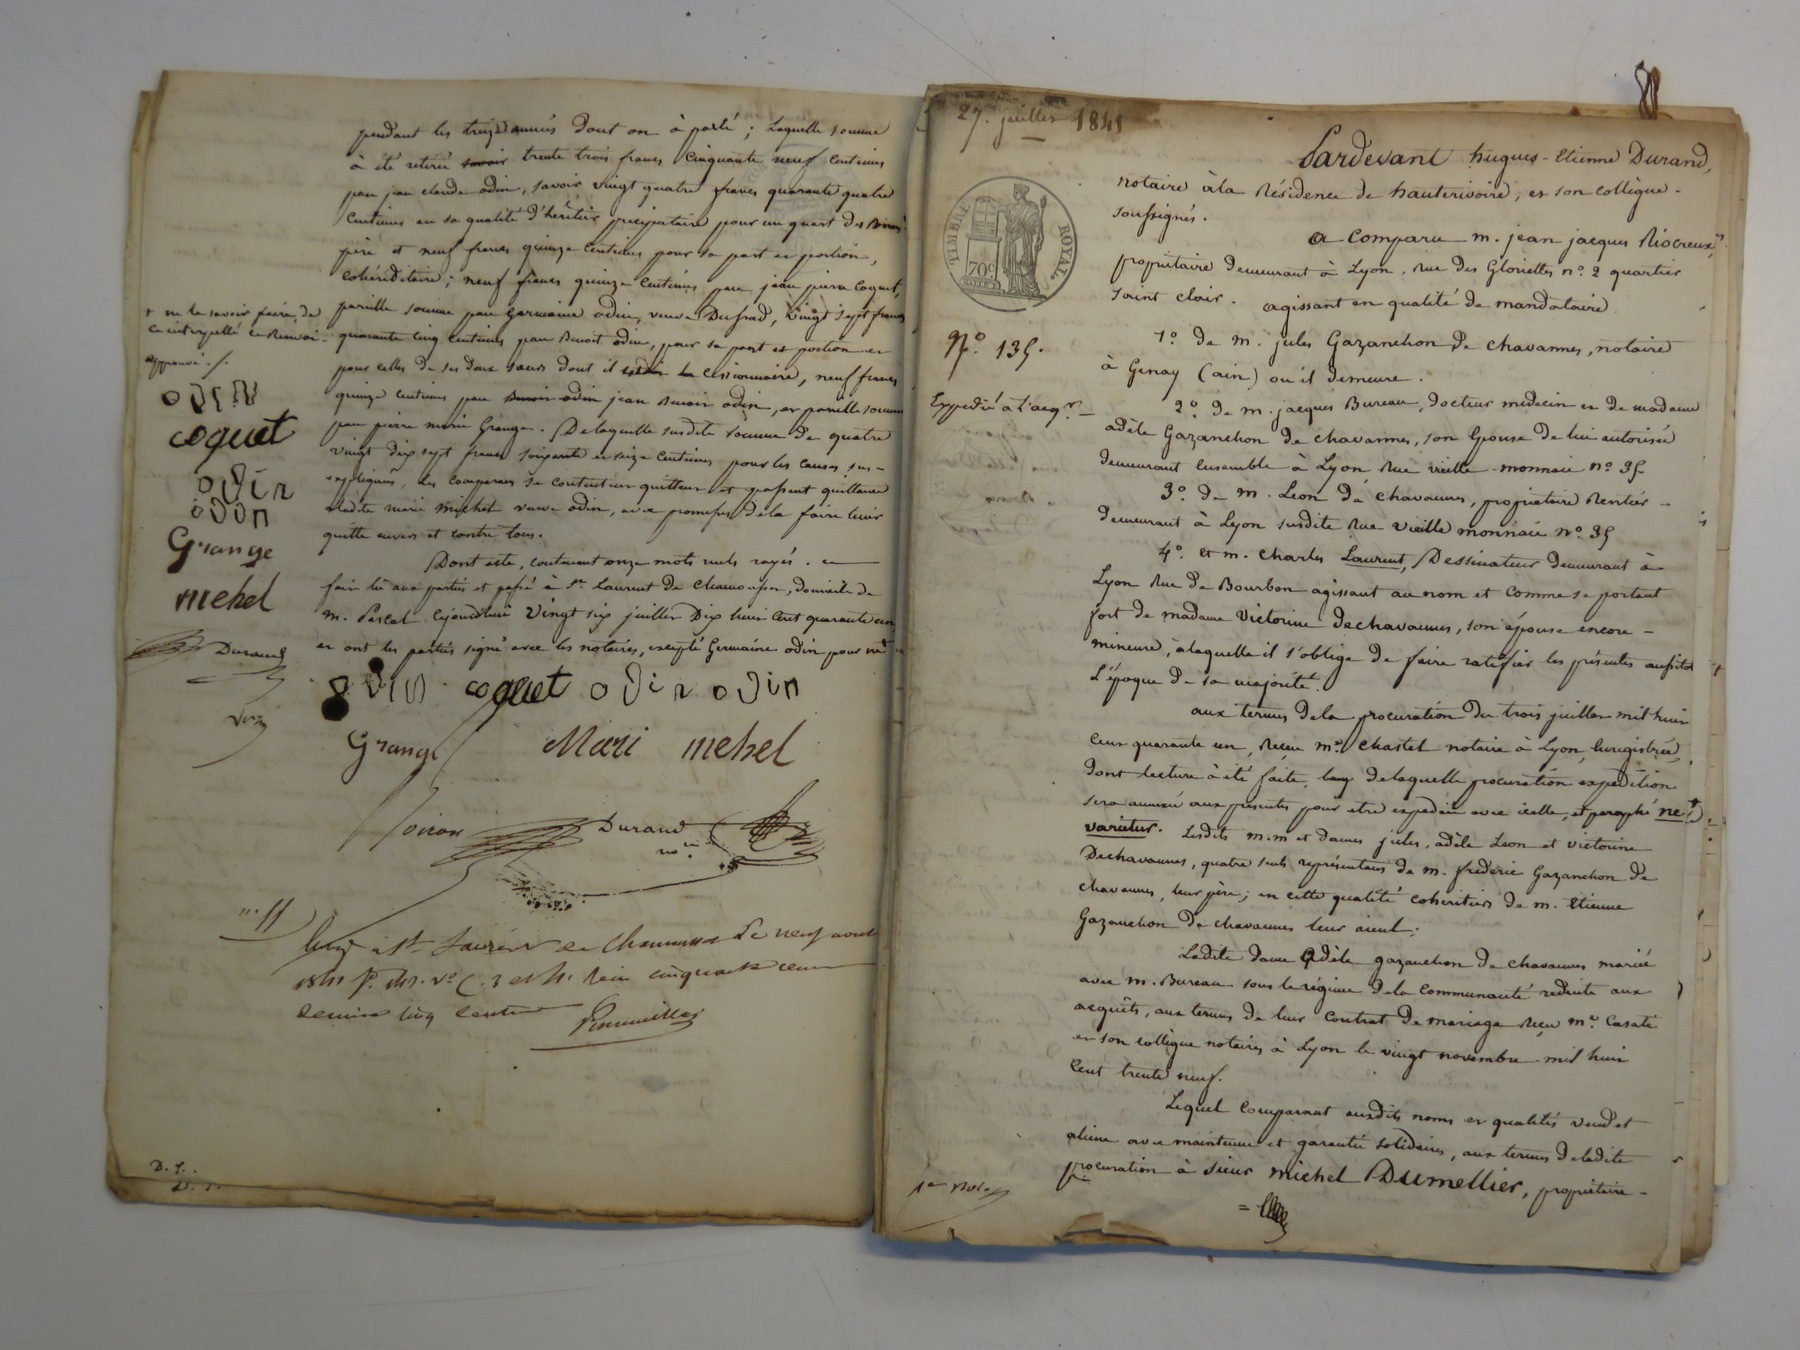 pendant les treize années dont on à parlé ; laquelle somme
à été retirée savoir trente trois francs cinquante neuf centimes
par jean claude odin, savoir vingt quatre francs quarante quatre
centimes en sa qualité d'héritier precipuitaire pour un quart des biens
père et neuf francs quinze centimes pour sa part et portion,
cohéréditaire ; neuf francs quinze centimes par jean pierre coquet,
pareille somme par germaine odin, veuve Dufrad, vingt sept francs
quarante cinq centimes par Benoit odin, pour sa part et portion et
pour celles de ses deux sœurs dont il est cessionnaire, neuf francs
quinze centimes par Benoit odin jean Benoit odin, et pareille somme
par pierre marie Grange. De laquelle susdite somme de quatre
vingt dix sept francs soixante et seize centimes pour les causes sus-
expliquées, les comparans se contentent quittent et passent quittance
à ladite marie michel veuve odin, avec promesse de la faire tenir
quitte envers et contre tous.
Dont acte, contenant onze mots nuls rayés.
fait lu aux parties et passé à St. laurent de chamousset, domicile de
m. Pascal cejourd'hui vingt six juillet dix huit cent quarante un
et ont les parties signé avec les notaires, excepté Germaine odin pour
+ ne le savoir faire, de
ce interpellé ce Renvoi
approuvé ./.
odin
coquet
odin
odon
Grange
mehel
Durand
odin coquet odin odin
Grange Mari mehel
Durand
nore
n. 11
Enregé à St. Laurent de Chamousset le neuf aout
1841 f° v° C. 3 et 4. Reçu cinquante
centime cinq centimes
D. 1.
D. 1.
27. juillet 1841
TIMBRE ROYAL.
70c
N°. 135.
Expedié à l'acqr.
1er Rôle
Pardevant hugues-Etienne Durand,
notaire à la Résidence de hauterivoire, et son collègue
soussignés.
a comparu m. jean jacques Riocreux,
propriétaire demeurant à Lyon, rue des Gloriettes n°. 2 quartier
saint clair. agissant en qualité de mandataire
1°. de m. jules Gazanchon de chavannes, notaire
à Genay (ain) ou il demeure.
2°. de m. jacques Bureau, docteur médecin et de madame
adèle Gazanchon de chavannes, son épouse de lui autorisée
demeurant ensemble à Lyon rue vieille-monnaie n°. 35
3°. de m. Leon de chavannes, propriétaire Rentier
demeurant à Lyon susdite Rue vieille monnaie n°. 35
4°. et m. charles Laurent, Dessinateur demeurant à
Lyon Rue de Bourbon agissant au nom et comme se portant
fort de madame victorine dechavannes, son épouse encore
mineure, à laquelle il s'oblige de faire ratifier les présentes aussitot
l'époque de sa majorité.
aux termes de la procuration du trois juillet mil huit
cent quarante un, Reçue me. chastel notaire à Lyon, Enregistrée,
dont lecture à été faite, de laquelle procuration expédition
sera annexée aux présentes pour etre expediée avec icelle, et paraphé ne
varietur. Lesdits m.m et dames jules, adèle Leon et victorine
Dechavannes, quatre seuls représentans de m. fréderic Gazanchon de
chavannes, leur père ; en cette qualité cohéritiers de m. Etienne
Gazanchon de chavannes leur aieul ;
Ladite dame adèle gazanchon de chavannes mariée
avec m. Bureau sous le régime de la communauté réduite aux
acquêts, aux termes de leur contrat de mariage Reçu me. Casati
et son collègue notaires à Lyon le vingt novembre mil huit
cent trente neuf.
Lequel comparant auxdits noms et qualités vend et
aliène avec maintenue et garantie solidaire, aux termes de ladite
procuration à sieur michel Dumellier, propriétaire